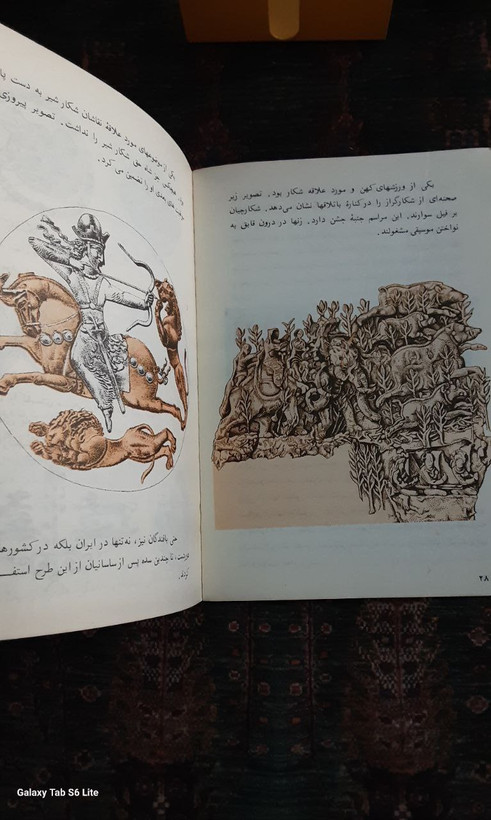 یکی از ورزشهای کهن و مورد علاقه شکار بود. تصویر زیر
صحنه‌ای از شکارگراز را در کنارهٔ باتلاقها نشان می‌دهد. شکارچیان
بر فیل سوارند. این مراسم جنبهٔ جشن دارد. زنها در درون قایق به
نواختن موسیقی مشغولند.
۲۸
یکی از موضوعهای مورد علاقهٔ نقاشان شکار شیر به دست
جز شاه حق شکار شیر را نداشت. تصویر پیروزی
او را تضمین می کرد.
حتی بافندگان نیز، نه‌تنها در ایران بلکه در کشورها
تا چندین سده پس از ساسانیان از این طرح استفـ
کردند.
Galaxy Tab S6 Lite